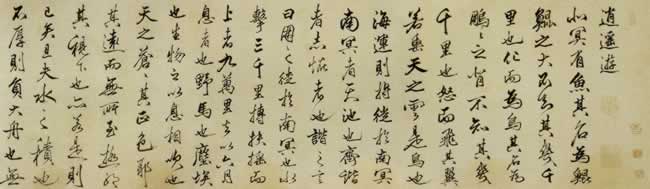 逍遥遊
北冥有魚其名為鯤
鯤之大不知其幾千
里也化而為鳥其名為
鵬々之背不知其幾
千里也怒而飛其翼
若垂天之雲是鳥也
海運則將徙於南冥
南冥者天池也齊諧
者志怪者也諧之言
曰鵬之徙於南冥也水
擊三千里摶扶搖而
上者九萬里去以六月
息者也野馬也塵埃
也生物之以息相吹也
天之蒼々其正色耶
其遠而無所至極耶
其視下也亦若是則
已矣且夫水之積也
不厚則負大舟也無